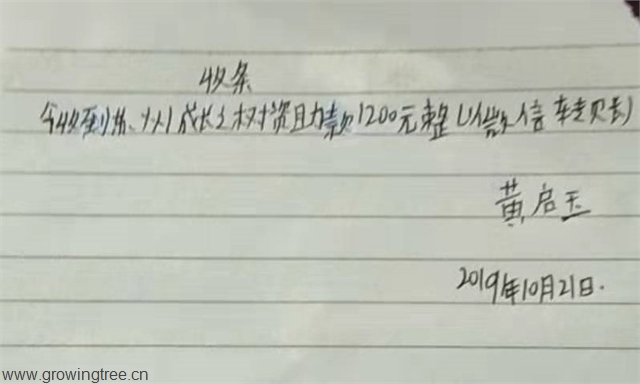 收条
今收到徐州成长之树资助款1200元整(微信转账)
黄启玉
2019年10月21日.
www.growingtree.cn